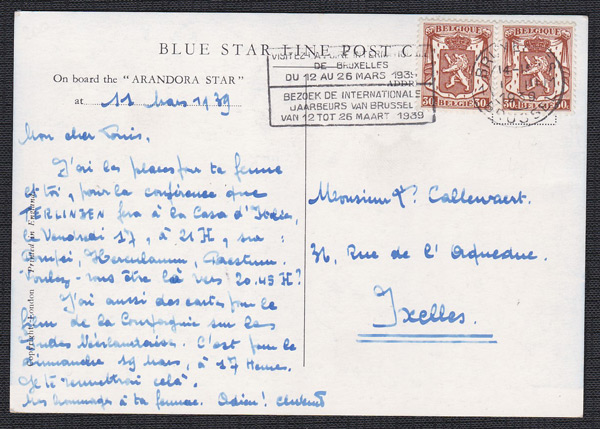 BLUE STAR LINE POST C
On board the "ARANDORA STAR"
at 11 Mars 1939
VISITEZ LA FOIRE INTERN
DE BRUXELLES
DU 12 AU 26 MARS 1939
BEZOEK DE INTERNATIONALE
JAARBEURS VAN BRUSSEL
VAN 12 TOT 26 MAART 1939
ADDR
BELGIQUE
BELGIE
30
30
BELGIQUE
BELGIE
30
30
Mon cher
J'ai les places pour ta femme
et toi, pour la conférence que
TERLINDEN fera à la Casa d'Italia,
le Vendredi 17, à 21H, sur :
Pompei, Herculanum, Paestum.
Voulez-vous être là vers 20.45 H?
J'ai aussi des cartes pour le
film de la Compagnie sur les
Indes Néerlandaises. C'est pour le
dimanche 19 mars, à 17 Heures.
Je te remettrai celà.
Mes hommages à ta femme. Adieu!
Copyright London Printed in England
Monsieur Callewaert.
31, Rue de l'Aqueduc.
Ixelles.